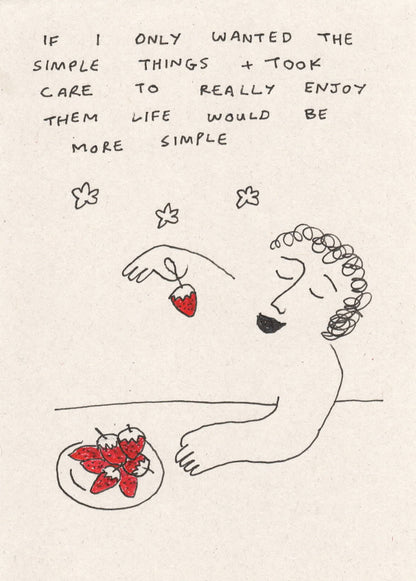 IF I ONLY WANTED THE
SIMPLE THINGS + TOOK
CARE TO REALLY ENJOY
THEM LIFE WOULD BE
MORE SIMPLE